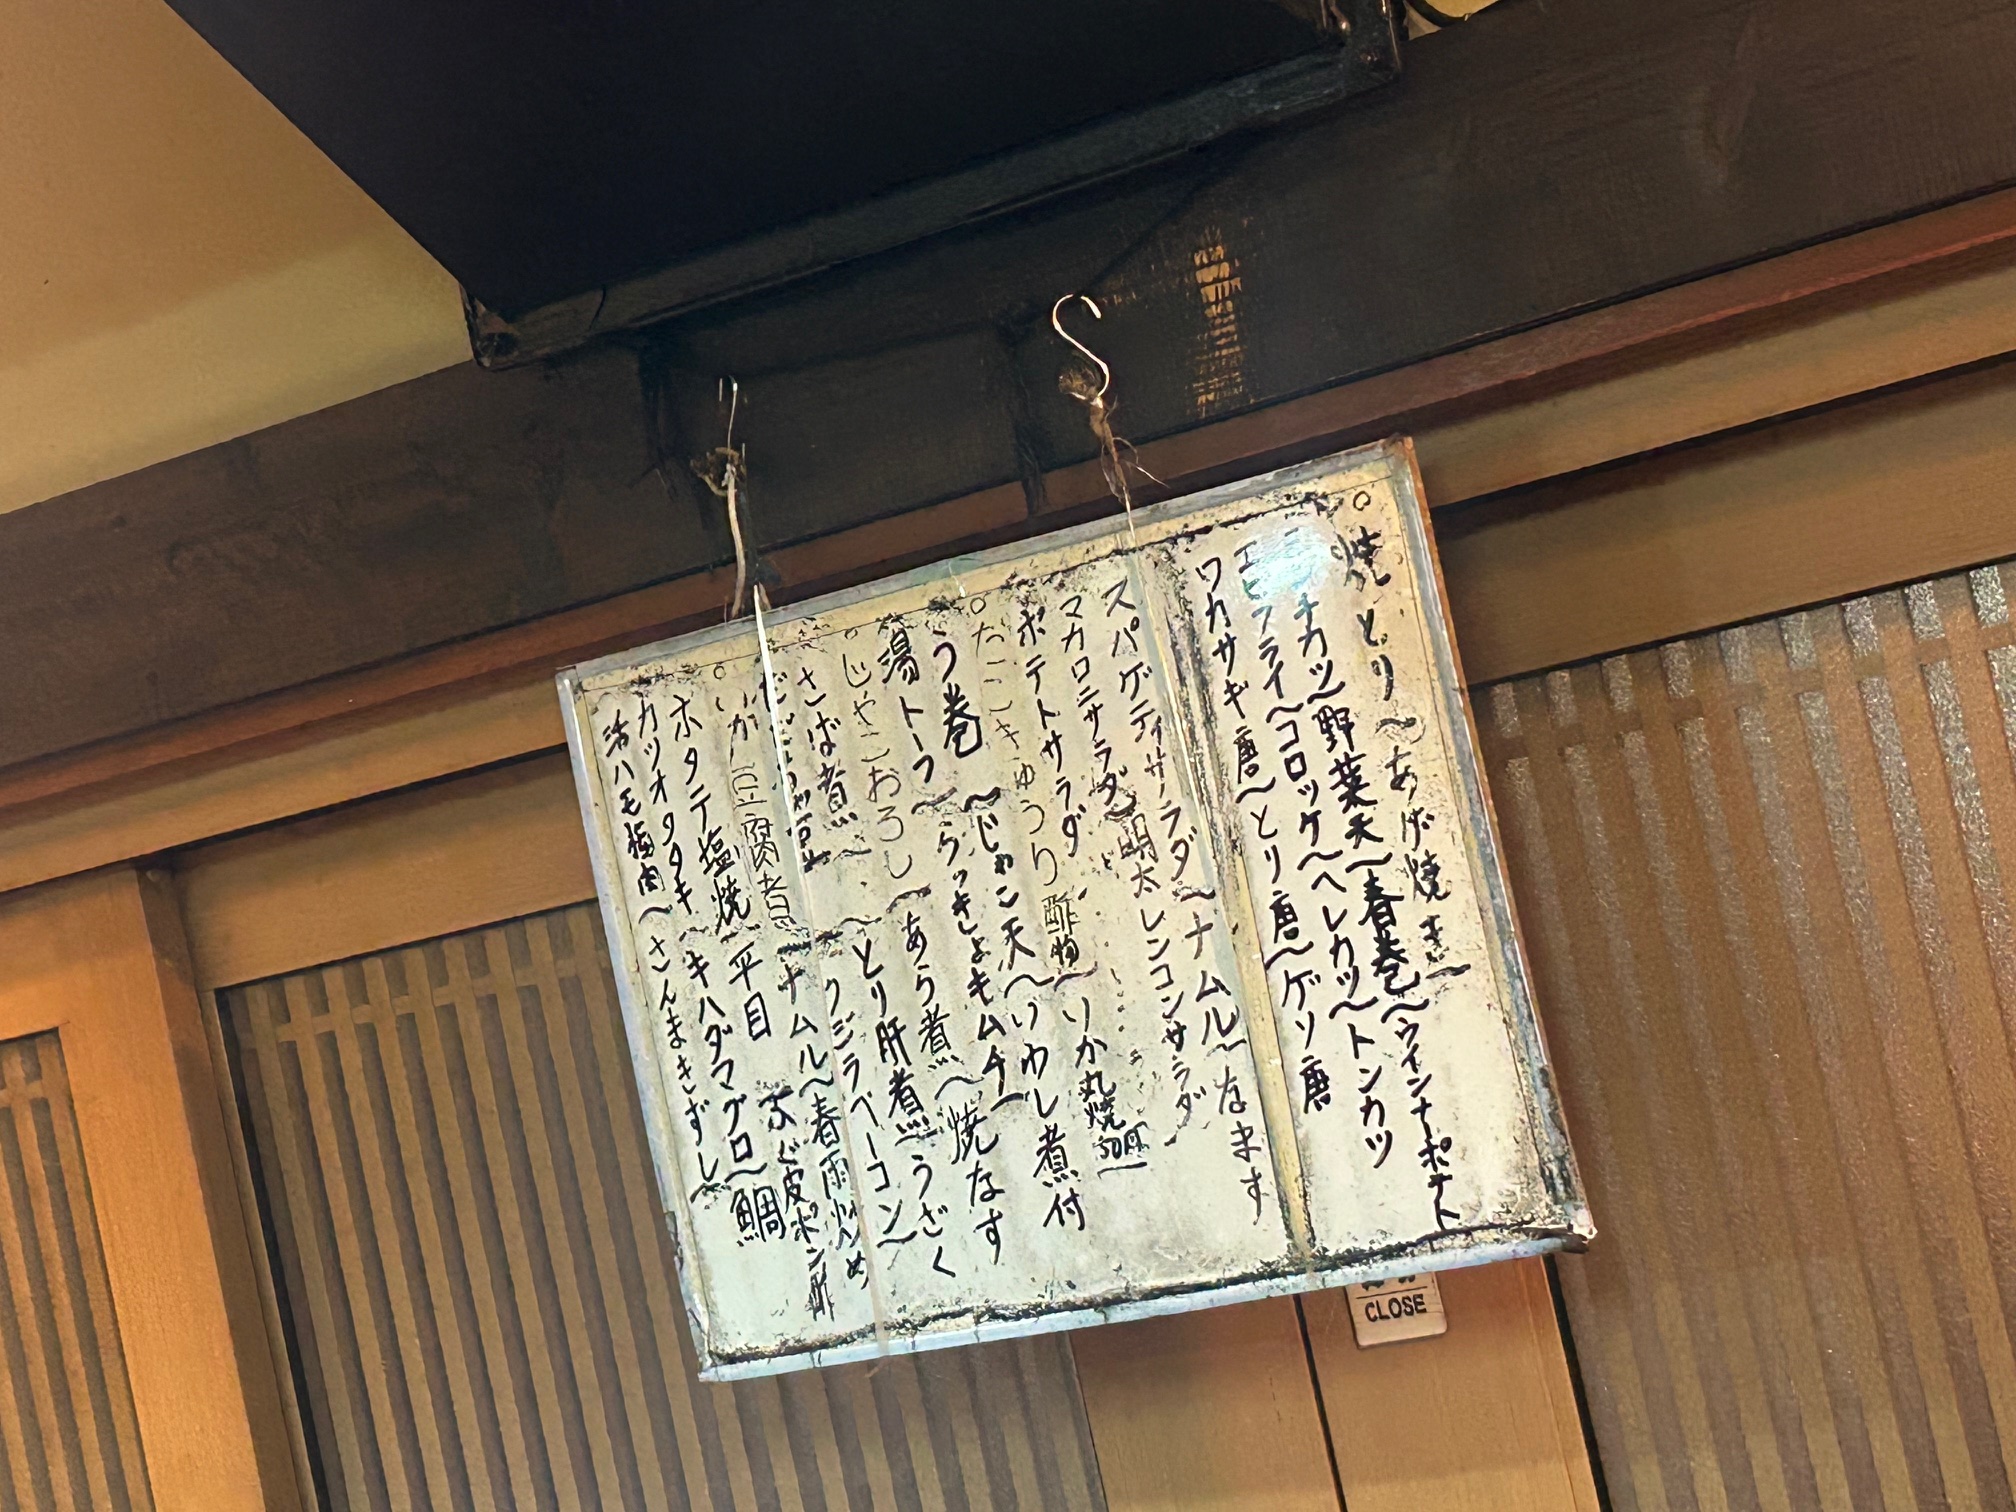 焼とり〜あげ焼き〜
ミンチカツ〜野菜天〜春巻〜ウインナーポテト
エビフライ〜コロッケ〜ヘレカツ〜トンカツ
ワカサギ唐〜とり唐〜ゲソ唐
スパゲティサラダ〜ナムル〜なます
マカロニサラダ〜明太レンコンサラダ
ポテトサラダ
たこきゅうり酢物〜いか丸焼
う巻〜じゃこ天〜いわし煮付
湯トーフ〜らっきょキムチ〜
じゃこおろし〜あら煮〜焼なす
さば煮〜とり肝煮〜うざく
クジラベーコン〜
豆腐煮〜ナムル〜春雨炒め
ホタテ塩焼〜平目 ふぐ皮ポン酢
カツオタタキ〜キハダマグロ〜鯛
活ハモ梅肉〜さんまきずし〜
CLOSE